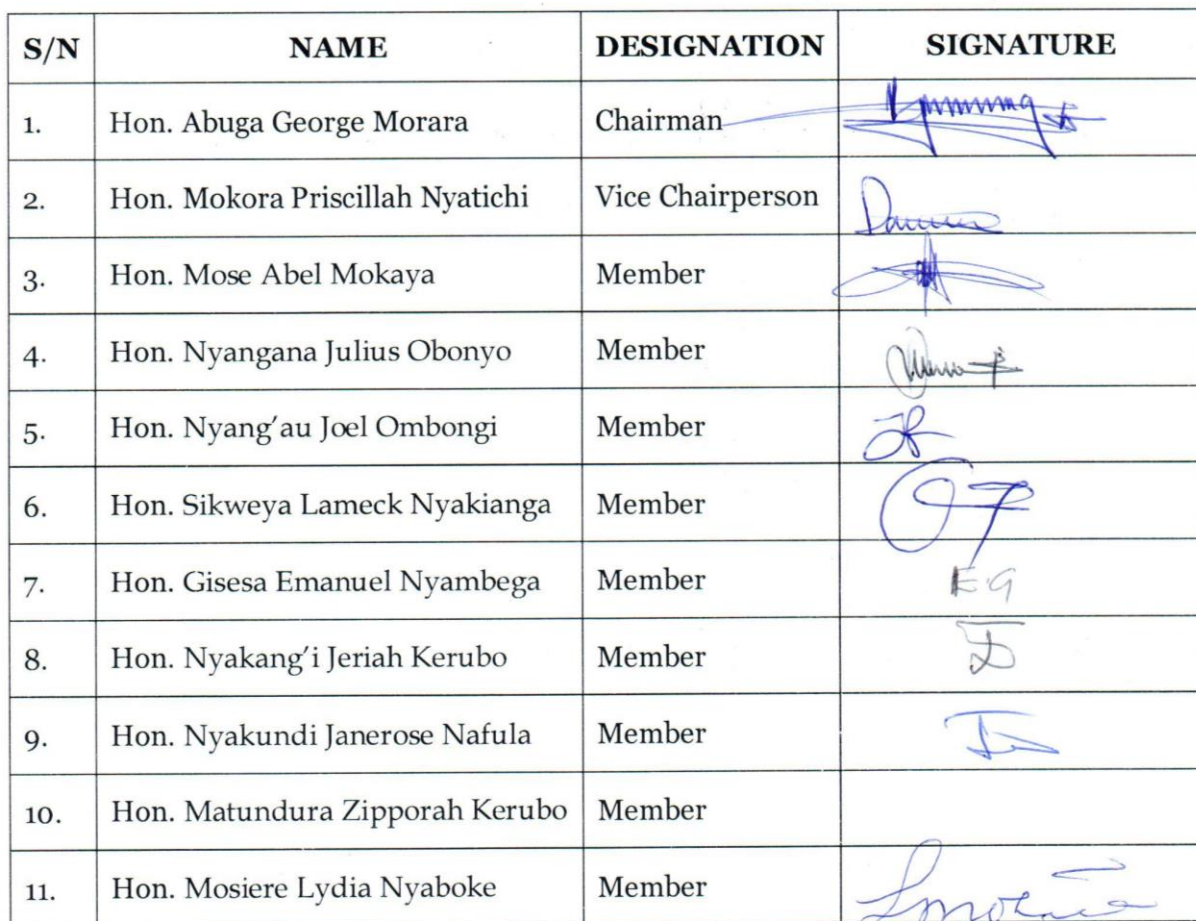 S/N NAME DESIGNATION SIGNATURE
1. Hon. Abuga George Morara Chairman
2. Hon. Mokora Priscillah Nyatichi Vice Chairperson
3. Hon. Mose Abel Mokaya Member
4. Hon. Nyangana Julius Obonyo Member
5. Hon. Nyang’au Joel Ombongi Member
6. Hon. Sikweya Lameck Nyakianga Member
7. Hon. Gisesa Emanuel Nyambega Member E.G
8. Hon. Nyakang’i Jeriah Kerubo Member
9. Hon. Nyakundi Janerose Nafula Member
10. Hon. Matundura Zipporah Kerubo Member
11. Hon. Mosiere Lydia Nyaboke Member